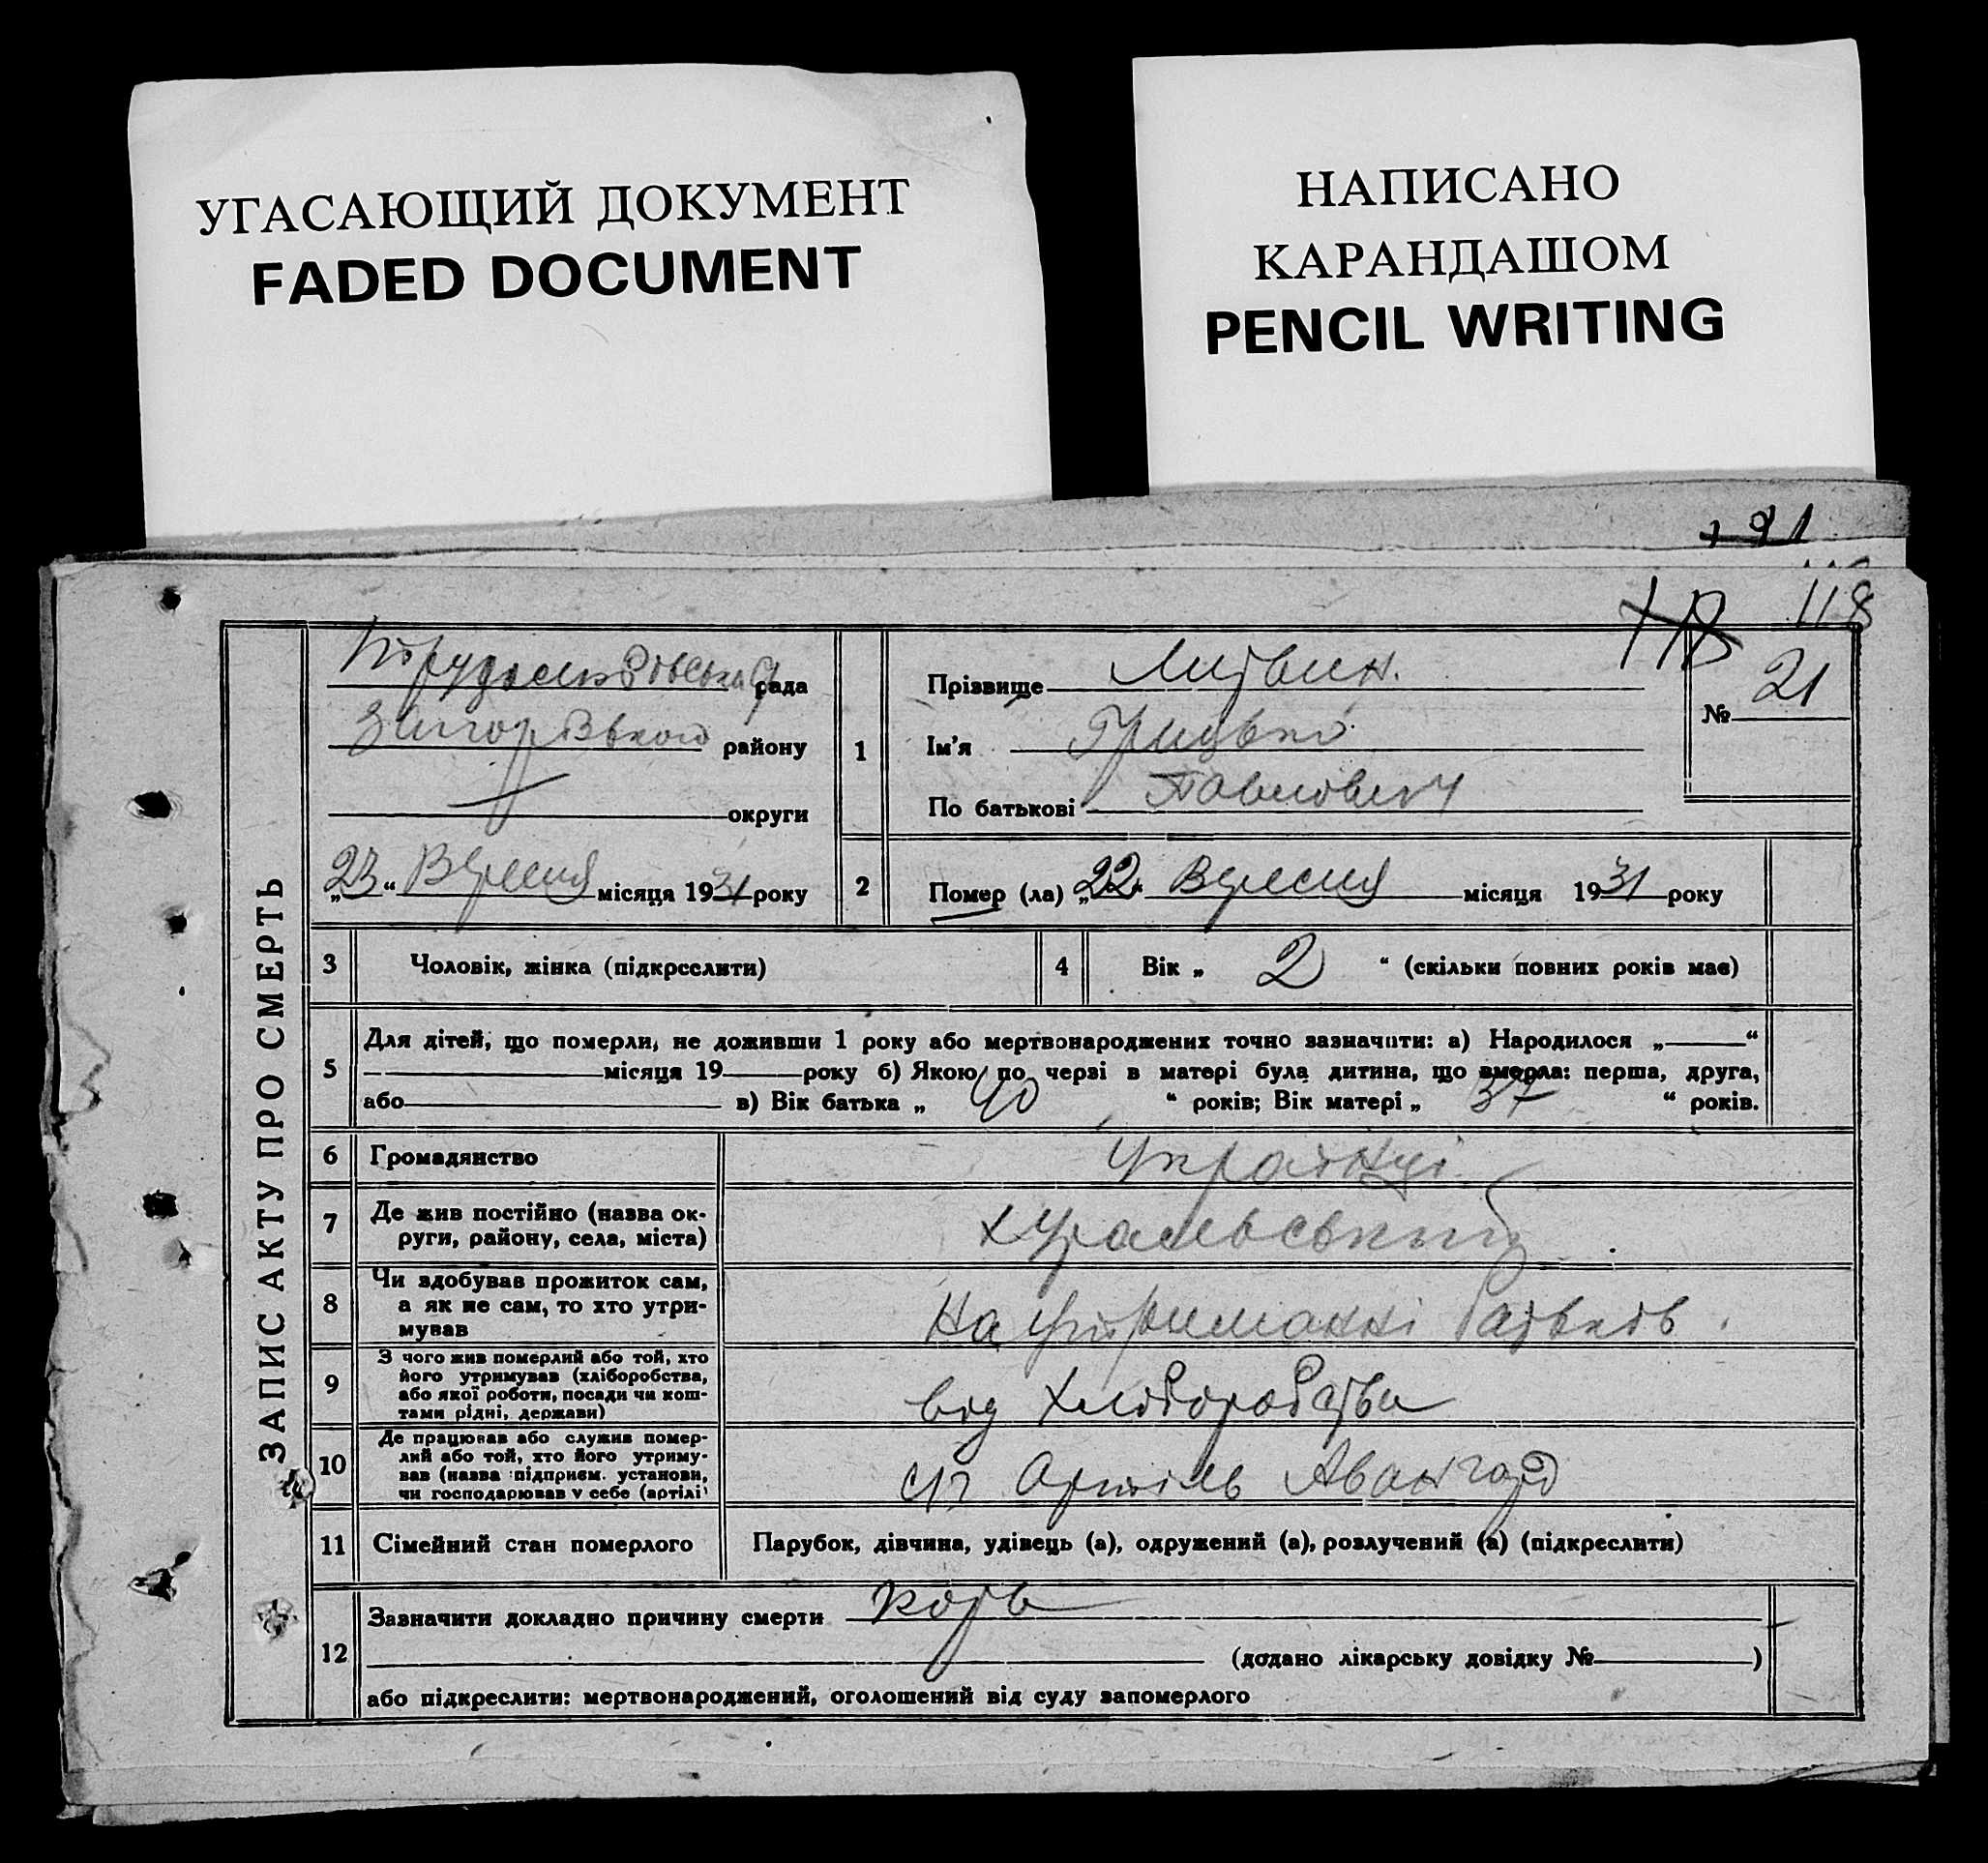 УГАСАЮЩИЙ ДОКУМЕНТ
FADED DOCUMENT
НАПИСАНО
КАРАНДАШОМ
PENCIL WRITING
191
118
ЗАПИС АКТУ ПРО СМЕРТЬ
рада
району
округи
„23“ Вересня місяця 1931 року
1
Прізвище Литвин.
Ім'я Грицько
По батькові Павлович
№ 21
2
Помер (ла) „22“ Вересня місяця 1931 року
3
Чоловік, жінка (підкреслити)
4
Вік „ 2 “ (скільки повних років мав)
5
Для дітей, що померли, не доживши 1 року або мертвонароджених точно зазначити: а) Народилося „ “
місяця 19 року б) Якою по черзі в матері була дитина, що вмерла: перша, друга,
або в) Вік батька „ 40 “ років; Вік матері „ 37 “ років.
6
Громадянство
Українці
7
Де жив постійно (назва ок-
руги, району, села, міста)
8
Чи здобував прожиток сам,
а як не сам, то хто утри-
мував
На утриманні батьків.
9
З чого жив померлий або той, хто
його утримував (хліборобства,
або якої роботи, посади чи кош-
тами рідні, держави)
від Хліборобства
10
Де працював або служив помер-
лий або той, хто його утриму-
вав (назва підприєм. установи,
чи господарював у себе (артілі)
с/г Артіль Авангард
11
Сімейний стан померлого
Парубок, дівчина, удівець (а), одружений (а), розлучений (а) (підкреслити)
12
Зазначити докладно причину смерти корь
(додано лікарську довідку № )
або підкреслити: мертвонароджений, оголошений від суду запомерлого